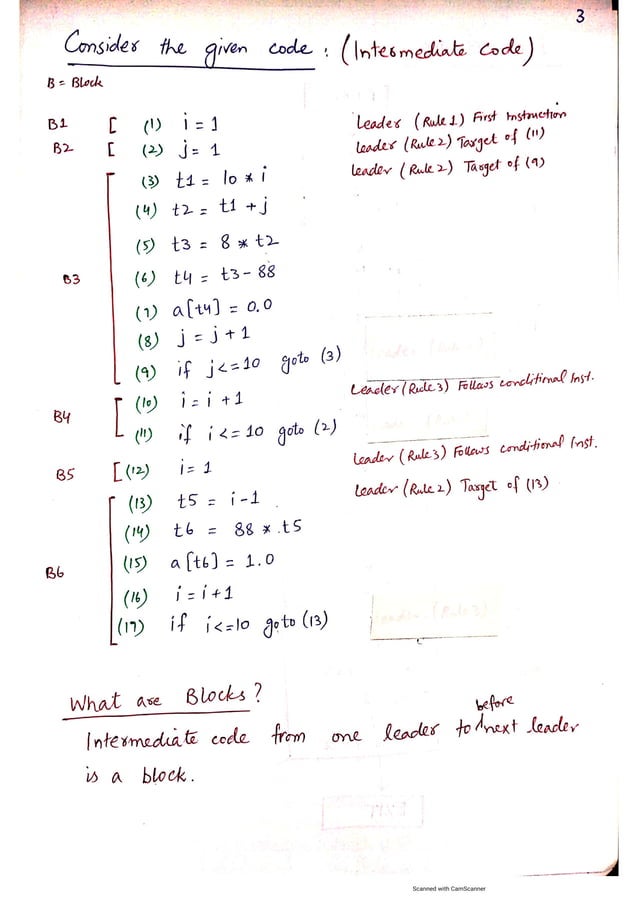 3
Consider the given code : (Intermediate Code)
B = Block
B1 [ (1) i = 1 Leader (Rule 1) First Instruction
B2 [ (2) j = 1 leader (Rule 2) Target of (11)
(3) t1 = 10 * i leader (Rule 2) Target of (9)
(4) t2 = t1 + j
(5) t3 = 8 * t2
B3 (6) t4 = t3 - 88
(7) a[t4] = 0.0
(8) j = j + 1
(9) if j <= 10 goto (3)
B4 (10) i = i + 1 Leader (Rule 3) Follows conditional Inst.
(11) if i <= 10 goto (2)
B5 [ (12) i = 1 leader (Rule 3) Follows conditional Inst.
(13) t5 = i - 1 leader (Rule 2) Target of (13)
(14) t6 = 88 * t5
(15) a[t6] = 1.0
B6 (16) i = i + 1
(17) if i <= 10 goto (13)
What are Blocks ?
Intermediate code from one leader to before next leader
is a block.
Scanned with CamScanner